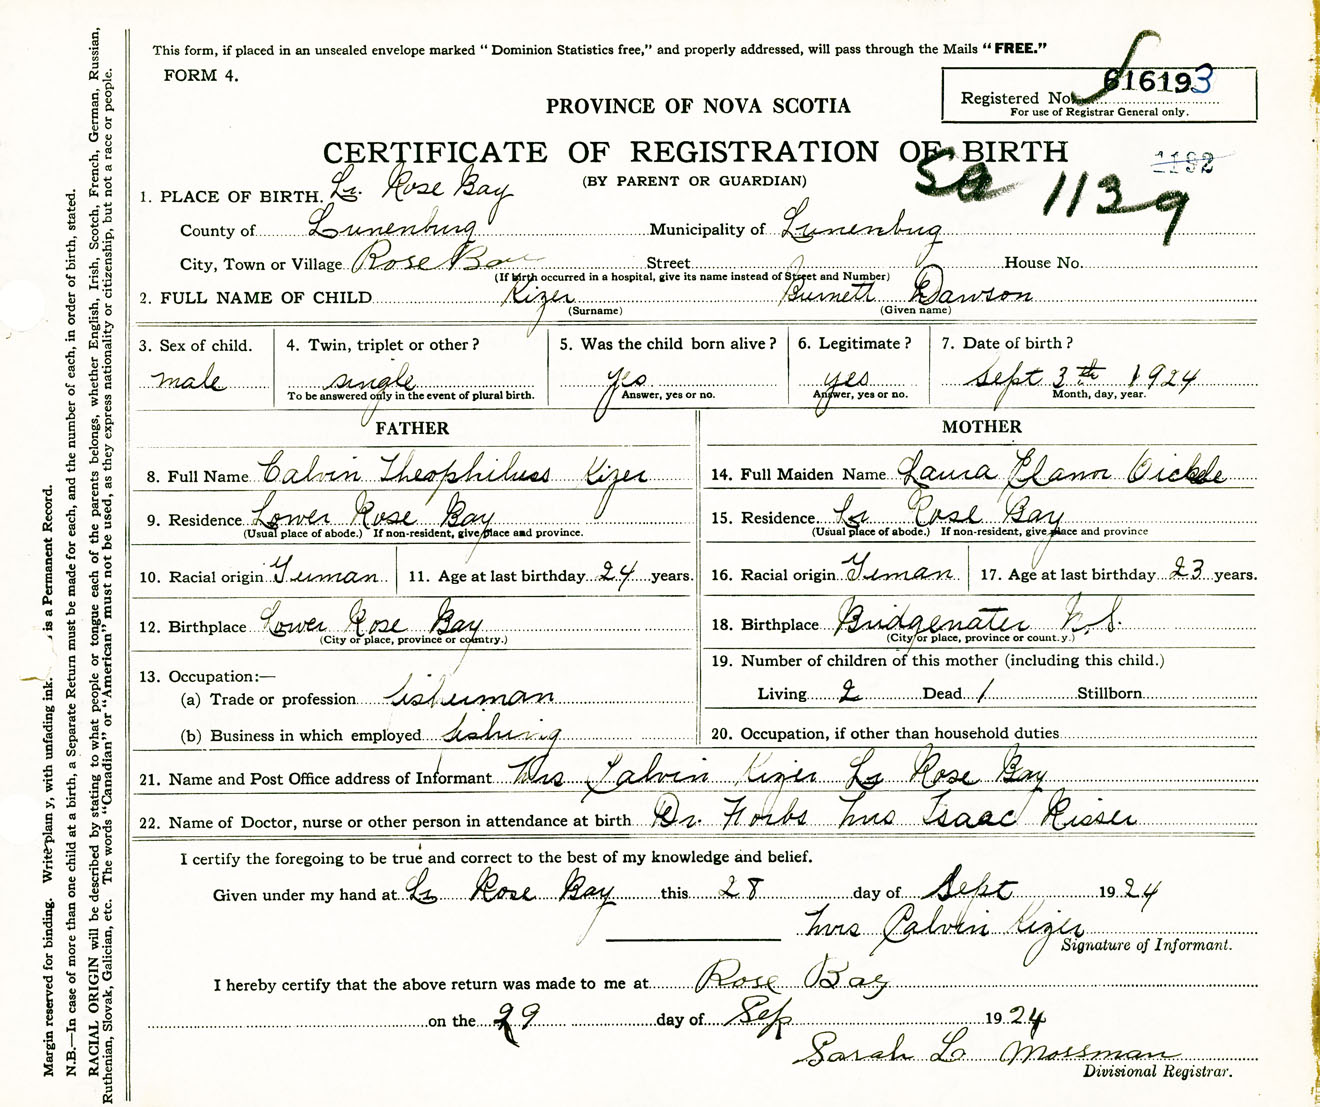 This form, if placed in an unsealed envelope marked “ Dominion Statistics free,” and properly addressed, will pass through the Mails “ FREE.”
FORM 4.
616193
Registered No.
For use of Registrar General only.
PROVINCE OF NOVA SCOTIA
CERTIFICATE OF REGISTRATION OF BIRTH
1182
(BY PARENT OR GUARDIAN)
1139
1. PLACE OF BIRTH. Lr. Rose Bay
County of Lunenburg Municipality of Lunenbug
City, Town or Village Rose Bay Street House No.
(If birth occurred in a hospital, give its name instead of Street and Number)
2. FULL NAME OF CHILD Kizer Burnett Dawson
(Surname) (Given name)
3. Sex of child. 4. Twin, triplet or other ? 5. Was the child born alive ? 6. Legitimate ? 7. Date of birth ?
male single yes yes Sept 3th 1924
To be answered only in the event of plural birth. Answer, yes or no. Answer, yes or no. Month, day, year.
FATHER MOTHER
8. Full Name Calvin Theophiluss Kizer 14. Full Maiden Name Laura Elanor Oickle
9. Residence Lower Rose Bay 15. Residence Lr Rose Bay
(Usual place of abode.) If non-resident, give place and province. (Usual place of abode.) If non-resident, give place and province
10. Racial origin German 11. Age at last birthday 24 years. 16. Racial origin German 17. Age at last birthday 23 years.
12. Birthplace Lower Rose Bay 18. Birthplace Bridgenater N.S.
(City or place, province or country.) (City or place, province or count.y.)
13. Occupation:— 19. Number of children of this mother (including this child.)
(a) Trade or profession fisherman Living 2 Dead 1 Stillborn
(b) Business in which employed fishing 20. Occupation, if other than household duties
21. Name and Post Office address of Informant Mrs Calvin Kizer Lr Rose Bay
22. Name of Doctor, nurse or other person in attendance at birth Dr. Forbs Mrs Isaac Risser
I certify the foregoing to be true and correct to the best of my knowledge and belief.
Given under my hand at Lr Rose Bay this 28 day of Sept 1924
Mrs Calvin Kizer
Signature of Informant.
I hereby certify that the above return was made to me at Rose Bay
on the 29 day of Sep 1924
Sarah L. Mossman
Divisional Registrar.
Margin reserved for binding. Write plain y, with unfading ink. is a Permanent Record.
N.B.—In case of more than one child at a birth, a Separate Return must be made for each, and the number of each, in order of birth, stated.
RACIAL ORIGIN will be described by stating to what people or tongue each of the parents belongs, whether English, Irish, Scotch, French, German, Russian,
Ruthenian, Slovak, Galician, etc. The words “Canadian” or “American” must not be used, as they express nationality or citizenship, but not a race or people.